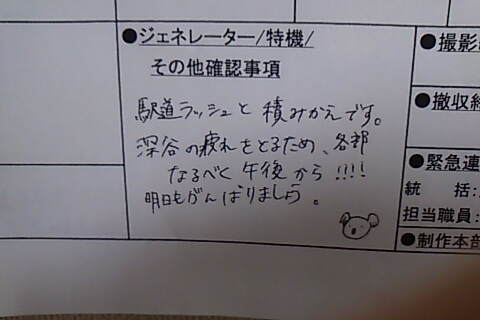 ●ジェネレーター/特機/
その他確認事項
駅道ラッシュと積みかえです。
深谷の疲れをとるため、各部
なるべく午後から!!!!
明日もがんばりましょう。
●撮影
●撤収
●緊急連
統　括:
担当職員:
●制作本部